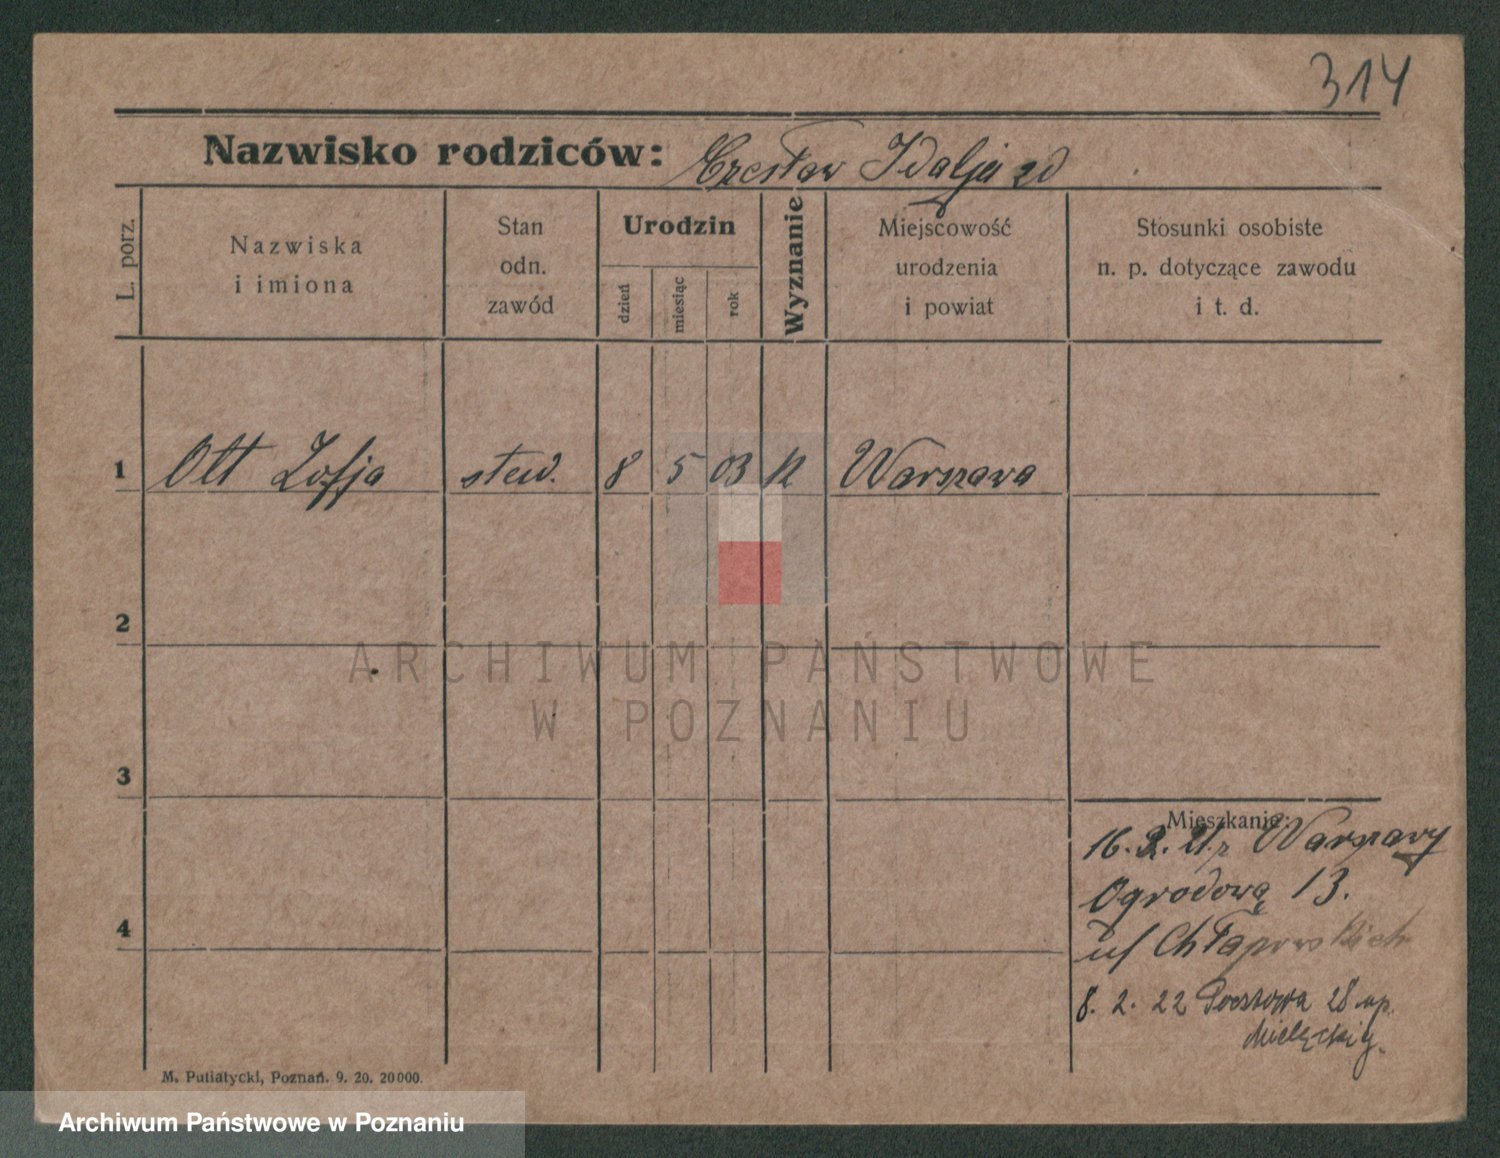 314
Nazwisko rodziców: Czesław Idalja zd
L. porz.
Nazwiska
i imiona
Stan
odn.
zawód
Urodzin
dzień
miesiąc
rok
Wyznanie
Miejscowość
urodzenia
i powiat
Stosunki osobiste
n. p. dotyczące zawodu
i t. d.
1 Ott Zofja sten. 8 5 03 k Warszawa
2
3
4
Mieszkanie:
16. 2. 21. z Warszawy
Ogrodowa 13.
u/ Chłapowskich
8. 2. 22 Pocztowa 28 up.
Mielęckiej.
M. Putiatycki, Poznań. 9. 20. 20000.
ARCHIWUM PAŃSTWOWE
W POZNANIU
Archiwum Państwowe w Poznaniu